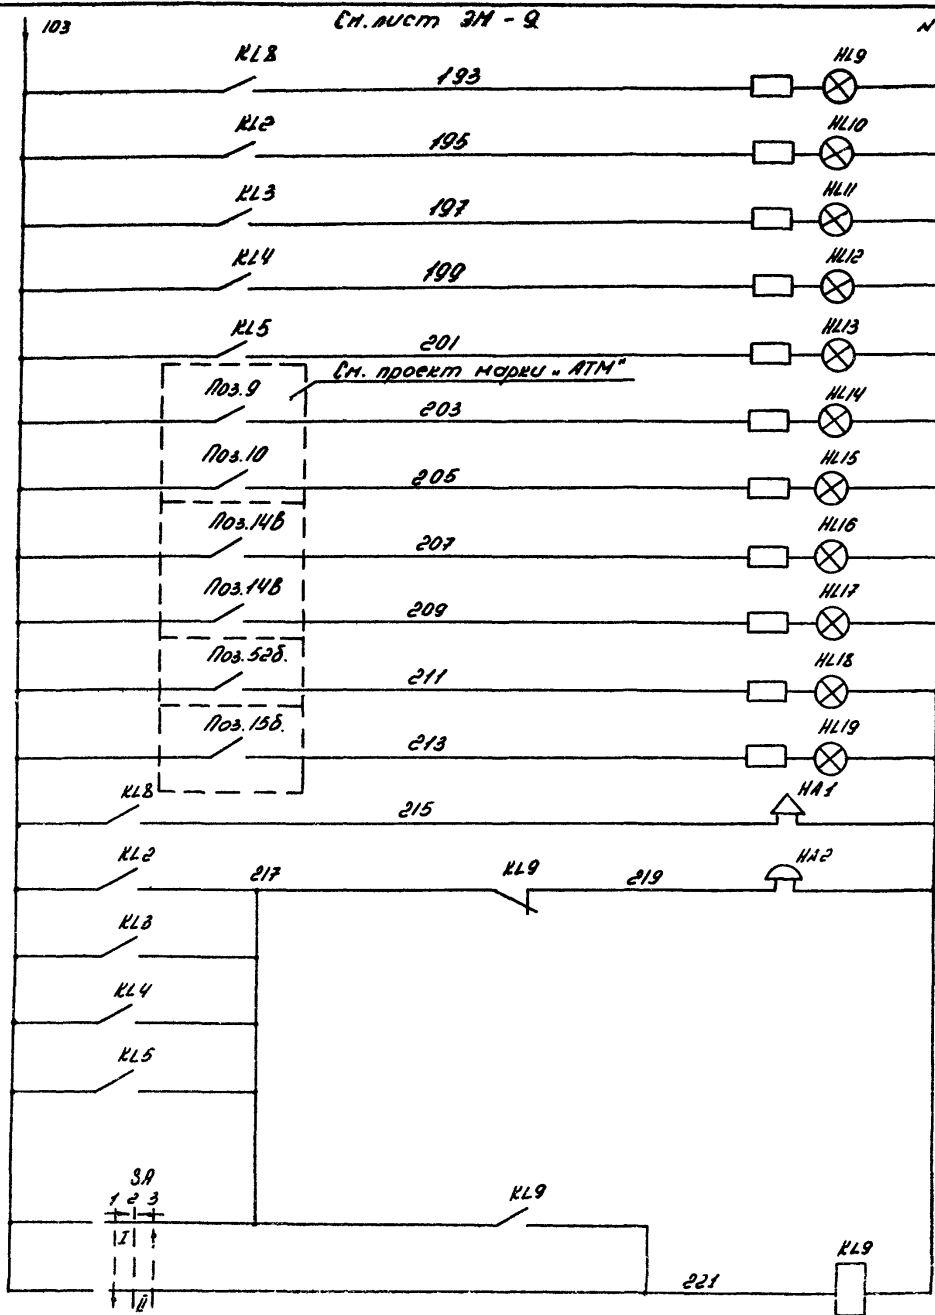 103 См. лист ЭМ - 2 N
KL8 193 HL9
KL2 195 HL10
KL3 197 HL11
KL4 199 HL12
KL5 201 HL13
См. проект марки „АТМ"
Поз.9 203 HL14
Поз.10 205 HL15
Поз.14в 207 HL16
Поз.14в 209 HL17
Поз.52б. 211 HL18
Поз.15б. 213 HL19
KL8 215 HA1
KL2 217 KL9 219 HA2
KL3
KL4
KL5
SA
1 2 3 KL9
I
KL9
221
II